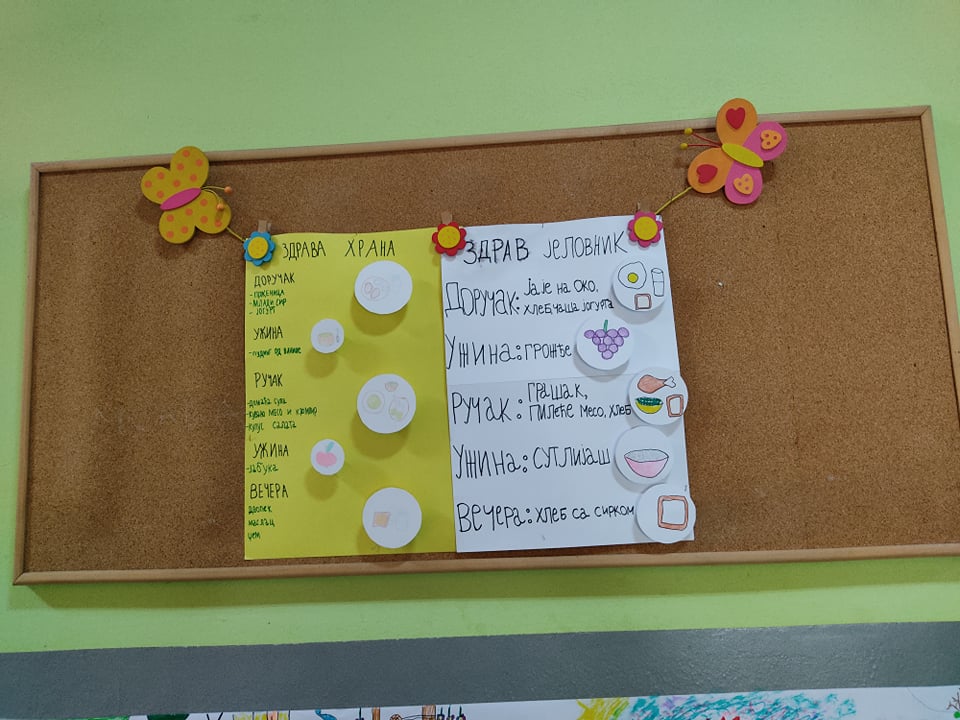 ЗДРАВА ХРАНА
ДОРУЧАК
- ПРЖЕНИЦА
- МЛАДИ СИР
- ЈОГУРТ
УЖИНА
- ПУДИНГ ОД ВАНИЛЕ
РУЧАК
- ДОМАЋА СУПА
- КУВАНО МЕСО И КРОМПИР
- КУПУС САЛАТА
УЖИНА
- ЈАБУКА
ВЕЧЕРА
ДВОПЕК
МАСЛАЦ
ЏЕМ
ЗДРАВ ЈЕЛОВНИК
ДОРУЧАК: ЈАЈЕ НА ОКО,
ХЛЕБ, ЧАША ЈОГУРТА
УЖИНА: ГРОЖЂЕ
РУЧАК: ГРАШАК,
ПИЛЕЋЕ МЕСО, ХЛЕБ
УЖИНА: СУТЛИЈАШ
ВЕЧЕРА: ХЛЕБ СА СИРКОМ